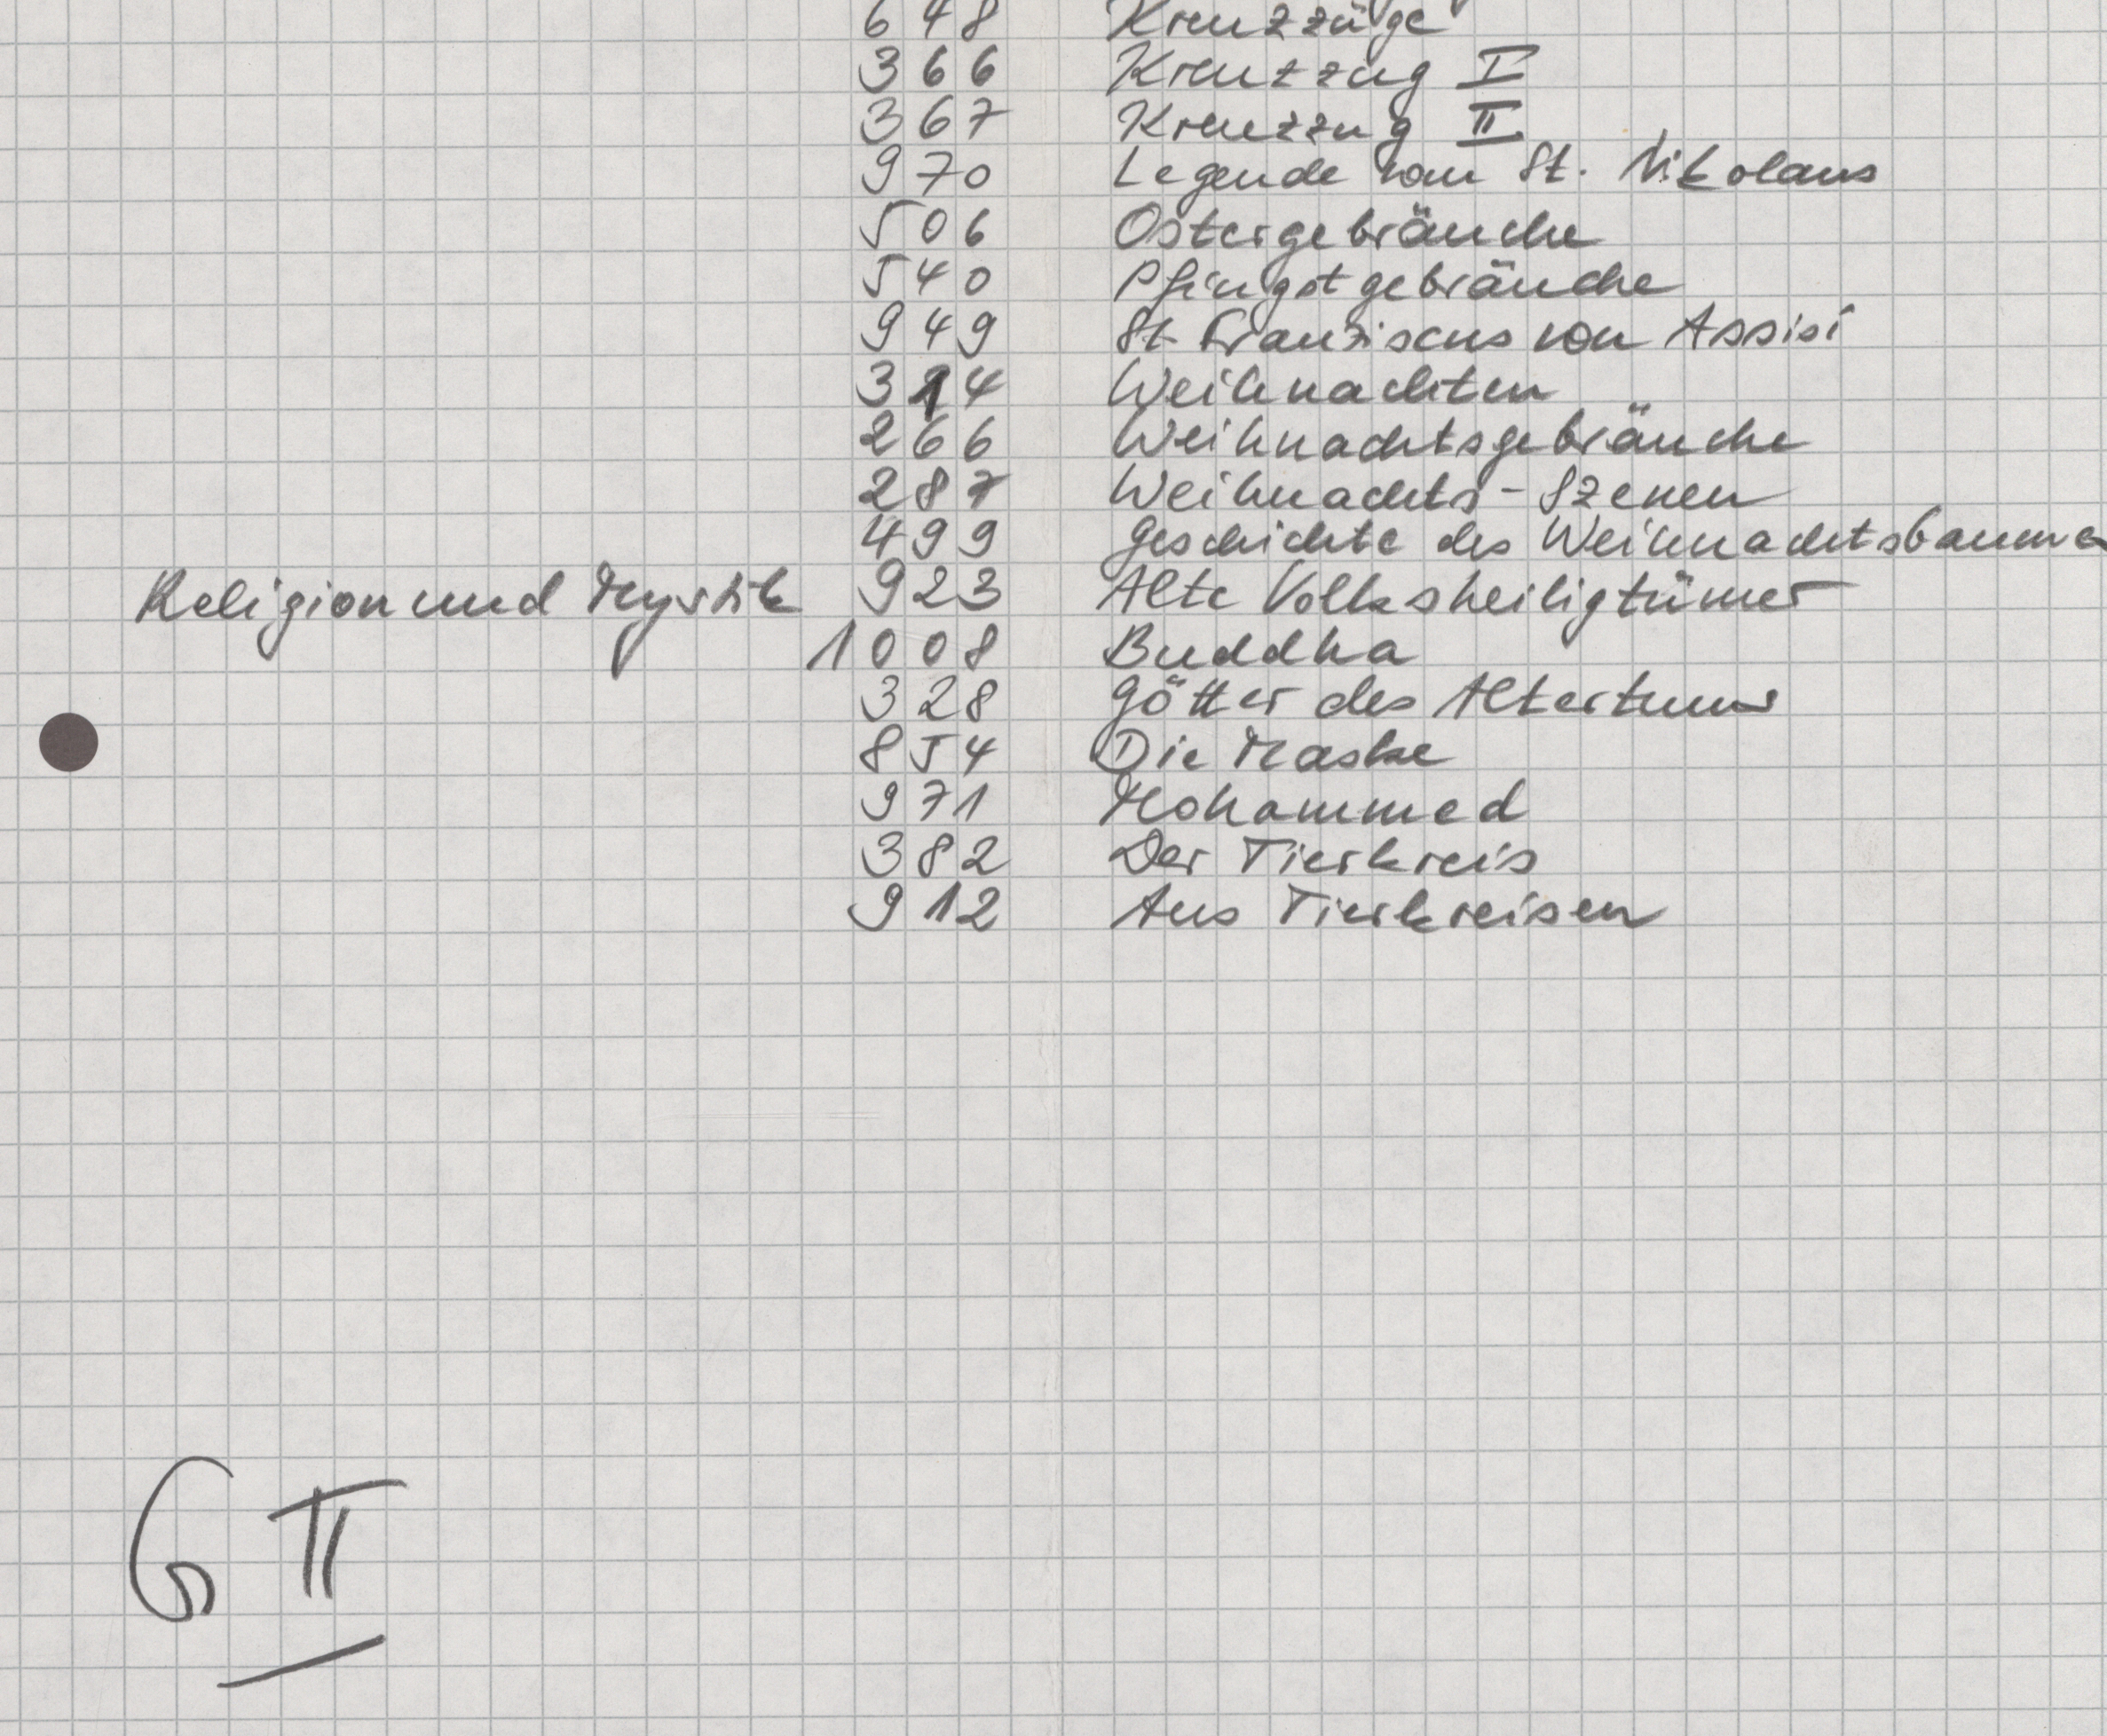 648 Kreuzzüge
366 Kreuzzug I
367 Kreuzzug II
970 Legende vom St. Nikolaus
506 Ostergebräuche
540 Pfingstgebräuche
949 St. Franziscus von Assisi
314 Weihnachten
266 Weihnachtsgebräuche
287 Weihnachts-Szenen
499 Geschichte des Weihnachtsbaumes
Religion und Mystik 923 Alte Volksheiligtümer
1008 Buddha
328 Götter des Altertums
854 Die Maske
971 Mohammed
382 Der Tierkreis
912 Aus Tierkreisen
6 II